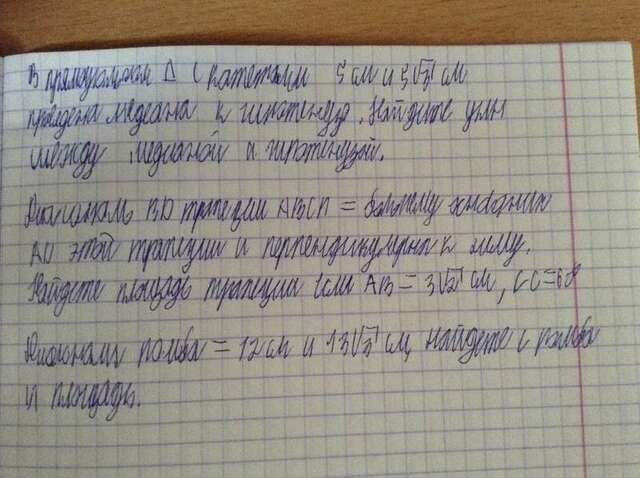 В прямоугольном Δ с катетами 5 см и 5√3 см
проведена медеана к гипотенузе. Найдите углы
между медианой и гипотенузой.
Диагональ BD трапеции ABCD = большему основанию
AD этой трапеции и перпендикулярна к нему.
Найдете площадь трапеции если AB = 3√2 см, <C=60
Диагонали ромба = 12 см и 13√3 см, найдете < ромба
и площадь.